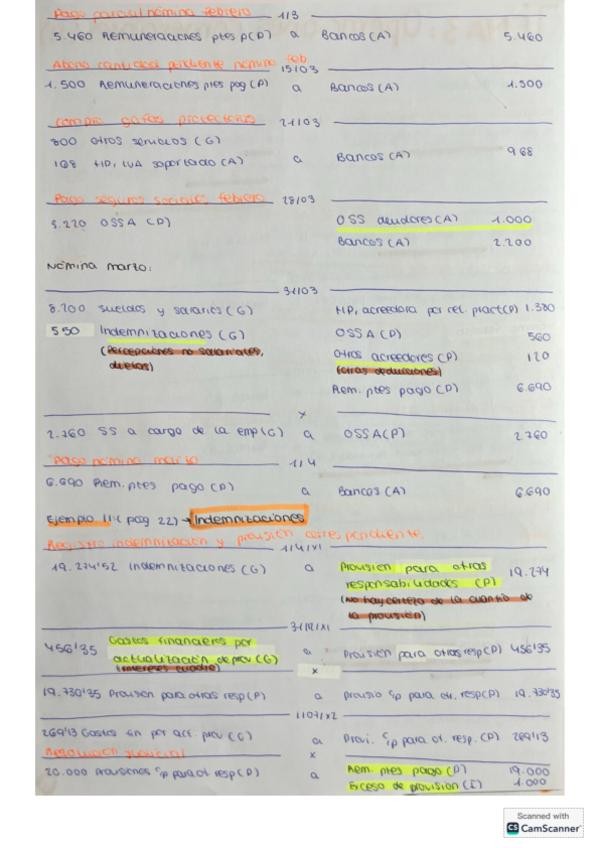 Pago parcial nómina febrero 1/3
5.460 Remuneraciones ptes p(P) a Bancos (A) 5.460
Abono cantidad pendiente nómina feb 15/03
1.500 Remuneraciones ptes pag (P) a Bancos (A) 1.500
Compra gafas protectoras 21/03
800 otros servicios (G)
168 HP, IVA soportado (A) a Bancos (A) 968
Pago seguros sociales febrero 28/03
OSS deudores (A) 1.000
OSSA (P)
Bancos (A) 2.200
Nómina marzo:
31/03
8.200 sueldos y salarios (G) HP, acreedora por ret. pract (P) 1.380
550 Indemnizaciones (G) OSSA (P) 560
(Percepciones no salariales, Otros acreedores (P) 120
dietas) (otras deducciones)
Rem. ptes pago (P) 6.690
x
2.760 SS a cargo de la emp (G) a OSSA (P) 2.760
Pago nómina marzo 1/4
6.690 Rem. ptes pago (P) a Bancos (A) 6.690
Ejemplo 11 (pag 22) → Indemnizaciones
Registro indemnización y provisión correspondiente.
1/4/x1
19.274'52 Indemnizaciones (G) a Provisión para otras 19.274
responsabilidades (P)
(No hay certeza de la cuantía de
la provisión)
31/12/x1
456'35 Gastos financieros por
actualización de prov (G) a Provisión para otras resp (P) 456'35
x
19.730'35 Provisión para otras resp (P) a provisio c/p para ot. resp (P) 19.730'35
1/07/x2
269'13 Gastos fin por act. prov (G) a Provi. c/p para ot. resp. (P) 269'13
Resolución judicial x
20.000 Provisiones c/p para ot resp (P) a Rem. ptes pago (P) 19.000
Exceso de provisión (I) 1.000
Scanned with
CS CamScanner